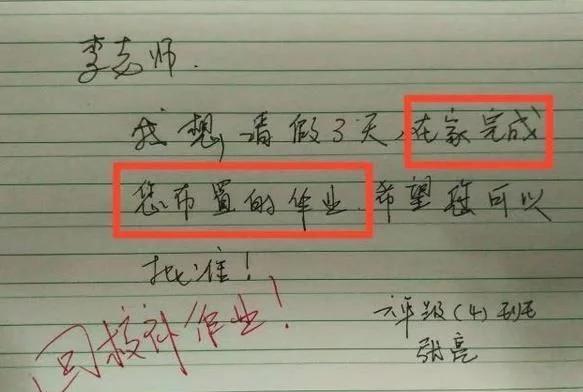 李老师.
我想,请假3天,在家完成
您布置的作业.希望您可以
批准!
六年级(4)班
张亮
回校补作业!